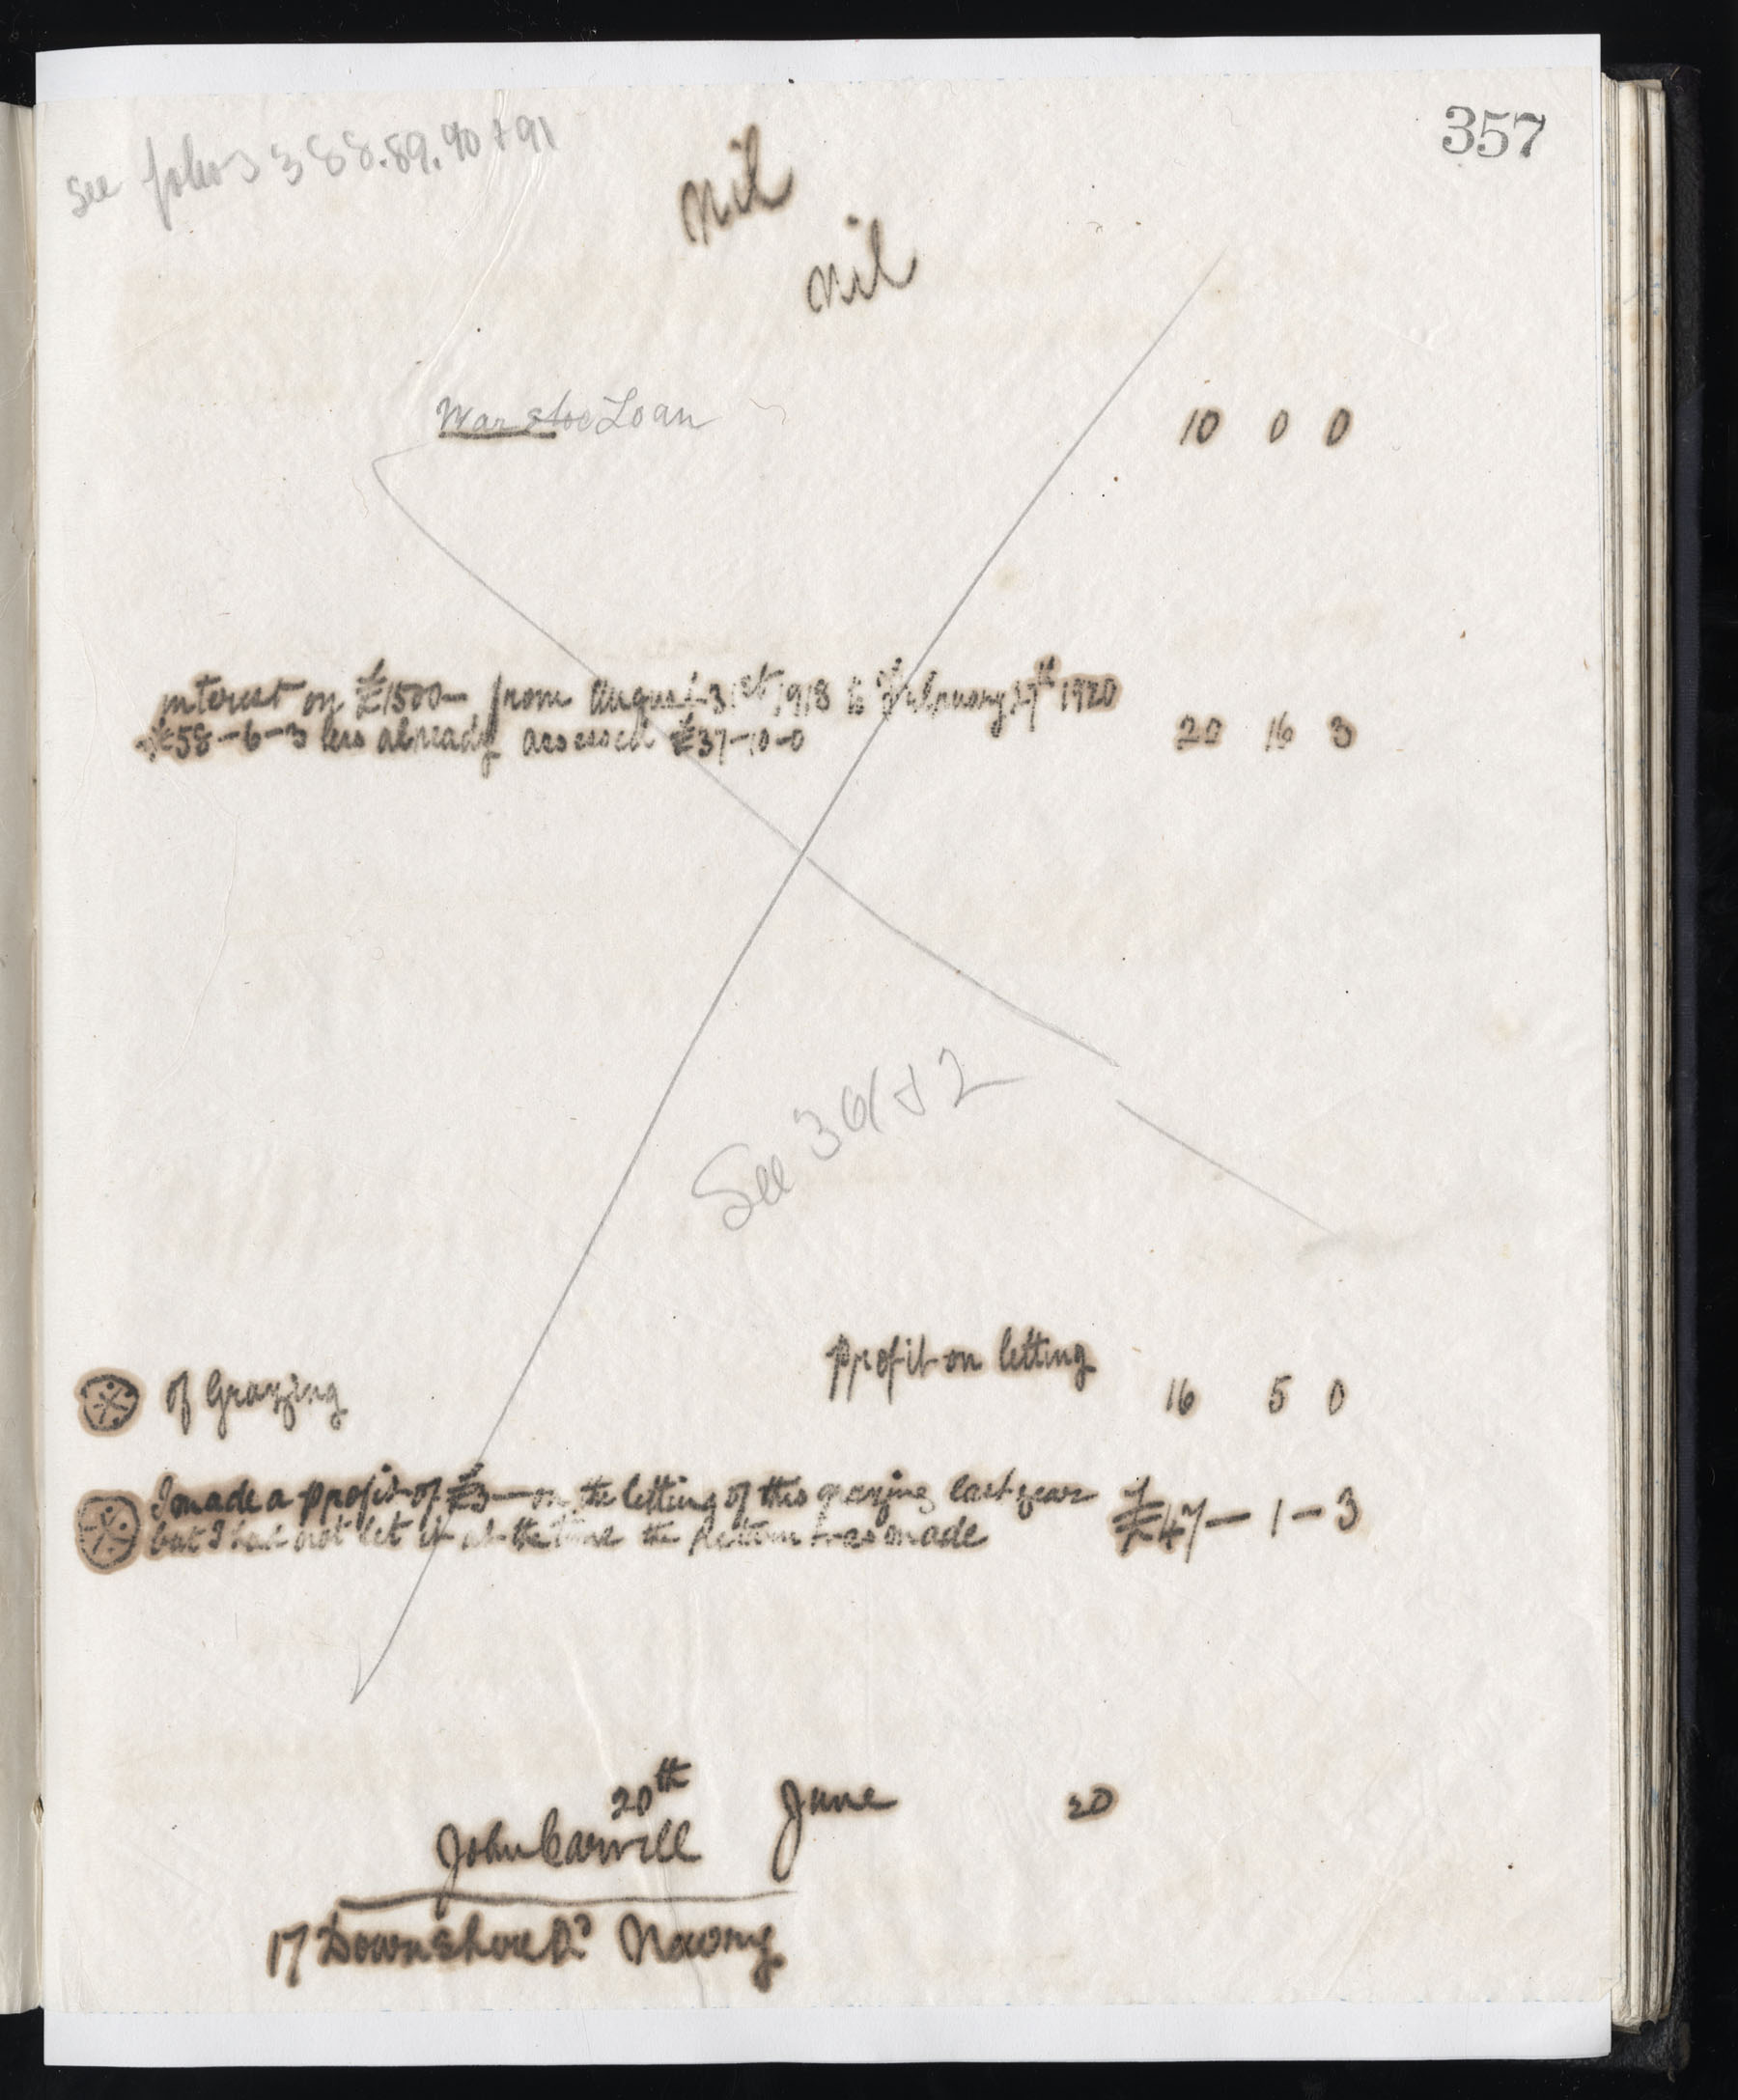 357
See folios 388.89.90 + 91
nil
nil
War Stoc Loan 10 0 0
interest on £1500— from August 31st 1918 to February 27th 1920
£58-6-3 less already assessed £37-10-0 20 16 3
See 391 & 2
profit on letting
of Grazing 16 5 0
I made a profit of £3— on the letting of this grazing last year
but I had not let it at the time the Return was made £47-1-3
20th June 20
John Carvill
17 Downshire Rd Newry